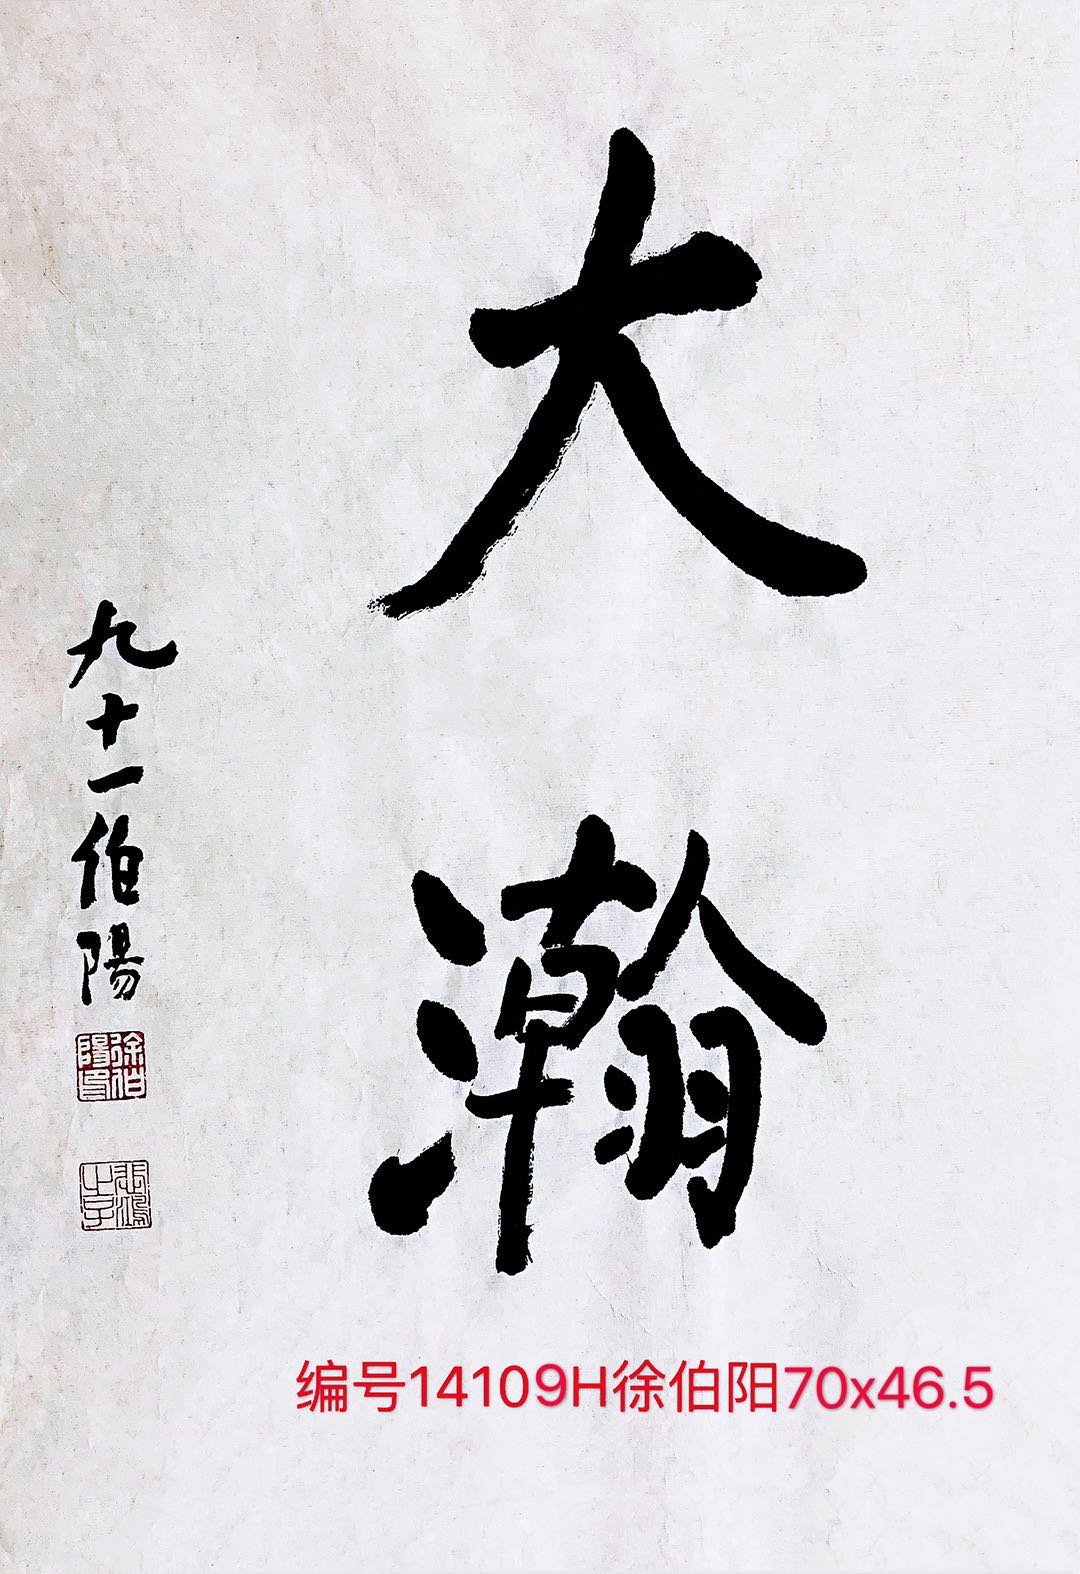 大瀚
九十一伯陽
徐伯陽印
悲鴻之子
编号14109H徐伯阳70x46.5